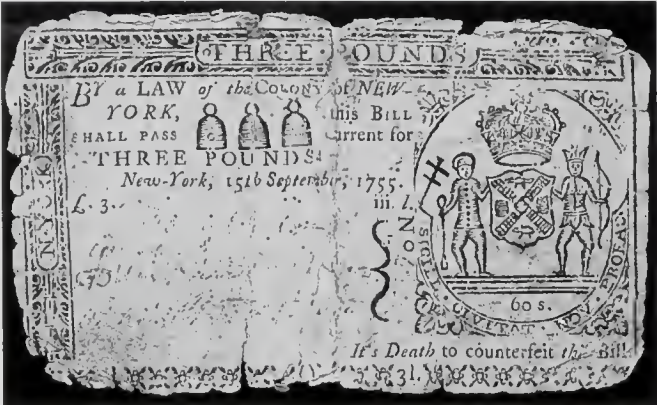 THREE POUNDS
BY a LAW of the COLONY of NEW-
YORK, this BILL
SHALL PASS current for
THREE POUNDS.
New-York, 15th September, 1755.
£. 3. iii. l.
No
N-YORK
SIGILL CIVITAT NOV EBORAC
60 s.
It's Death to counterfeit this Bill.
3l.